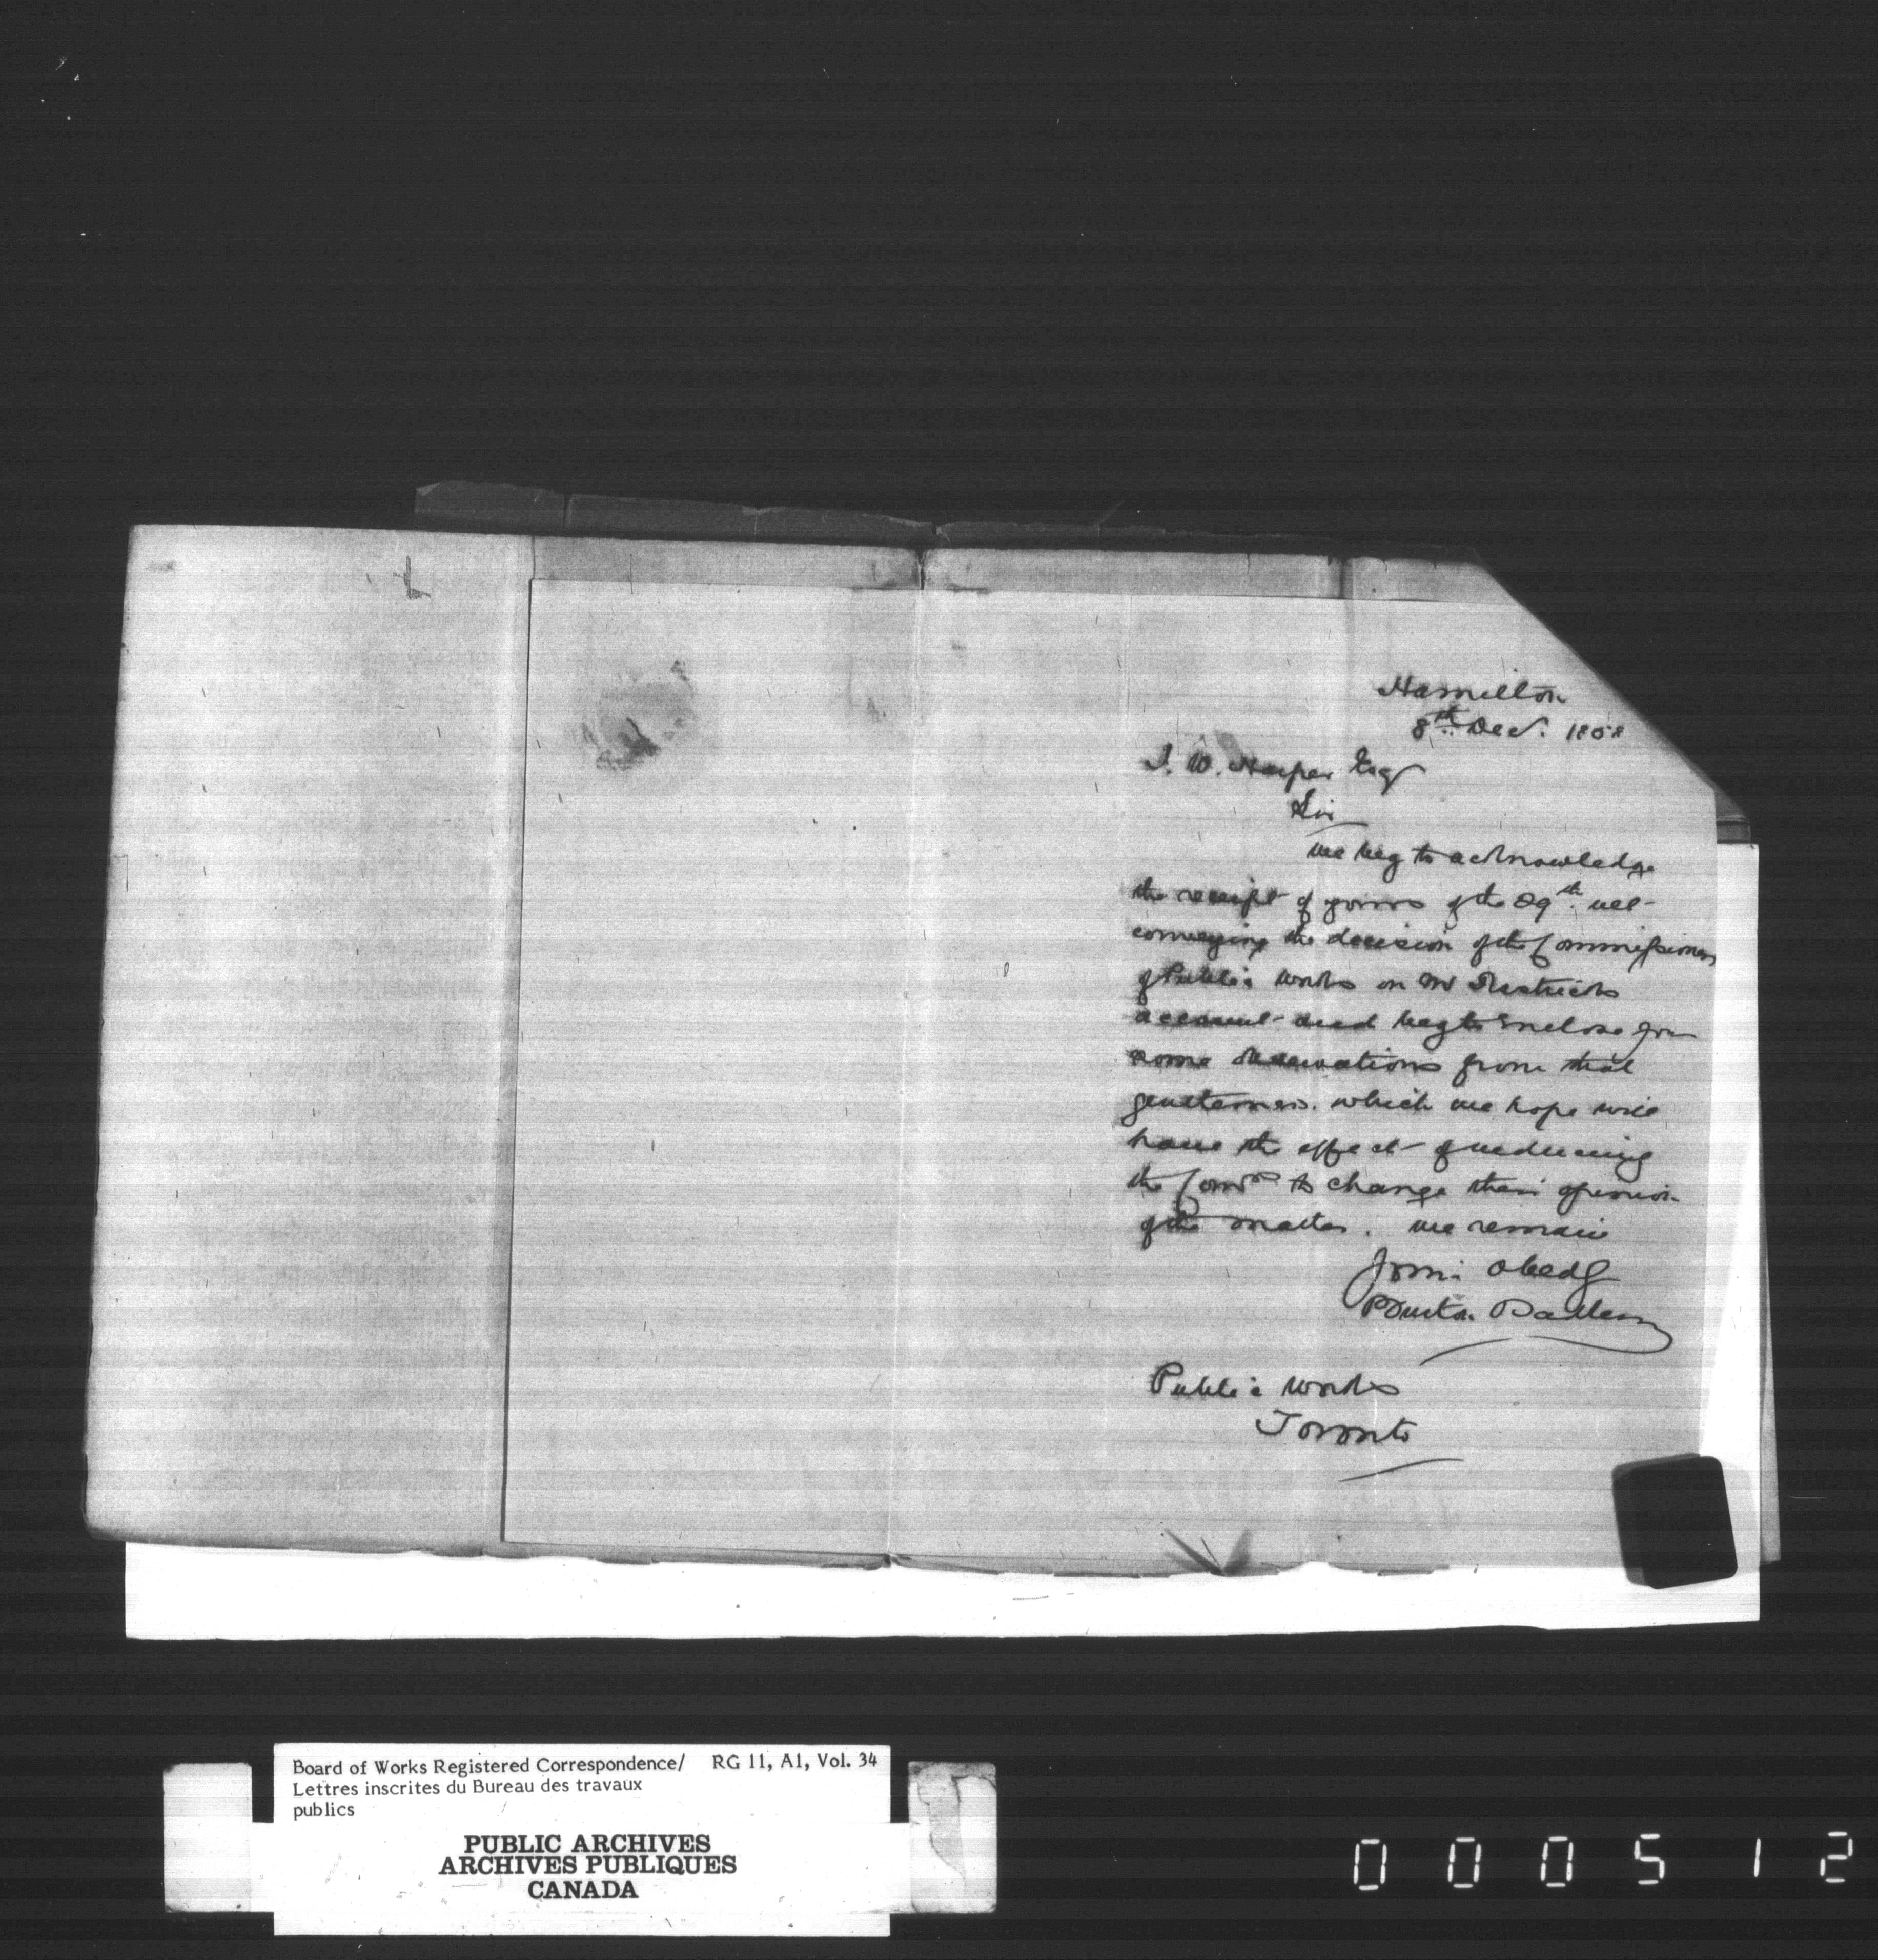 Hamilton
8th Decr. 1858
J. W. Harper Esq
Sir
We beg to acknowledge
the receipt of yours of the 29th ult
conveying the decision of the Commissioners
of Public Works on Mr
account and beg to enclose you
some observations from that
gentleman. which we hope will
have the effect of inducing
the Comrs to change their opinion
of the matter. We remain
Your Obed
Burton
Public Works
Toronto
Board of Works Registered Correspondence/ RG 11, A1, Vol. 34
Lettres inscrites du Bureau des travaux
publics
PUBLIC ARCHIVES
ARCHIVES PUBLIQUES
CANADA
000512